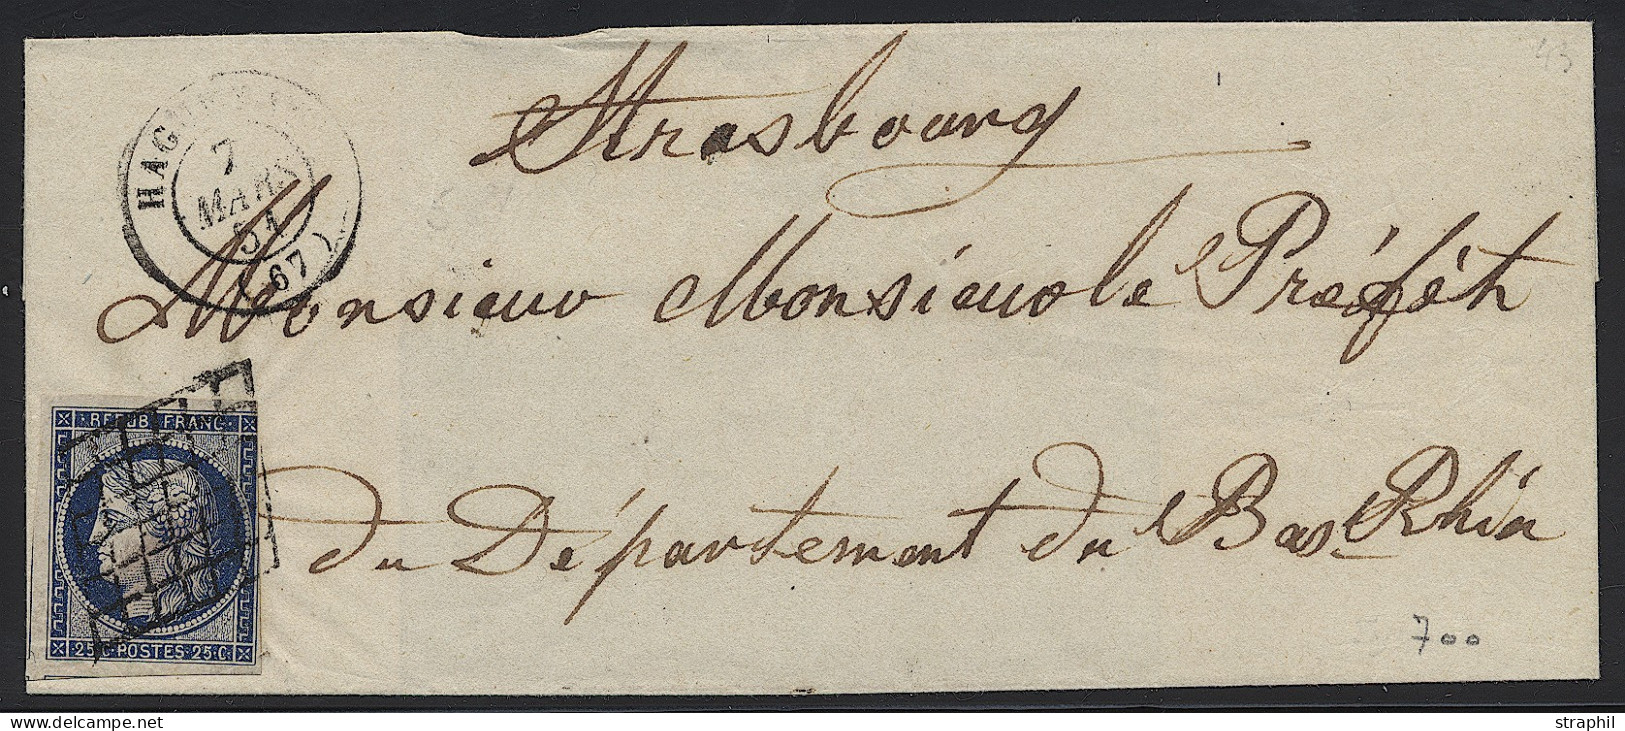 Strasbourg
HAG
7
MARS
51
(67)
Monsieur Monsieur le Préfèt
du Département du Bas-Rhin
REPUB. FRANC.
25 C. POSTES 25 C.
700
43
www.delcampe.net
straphil